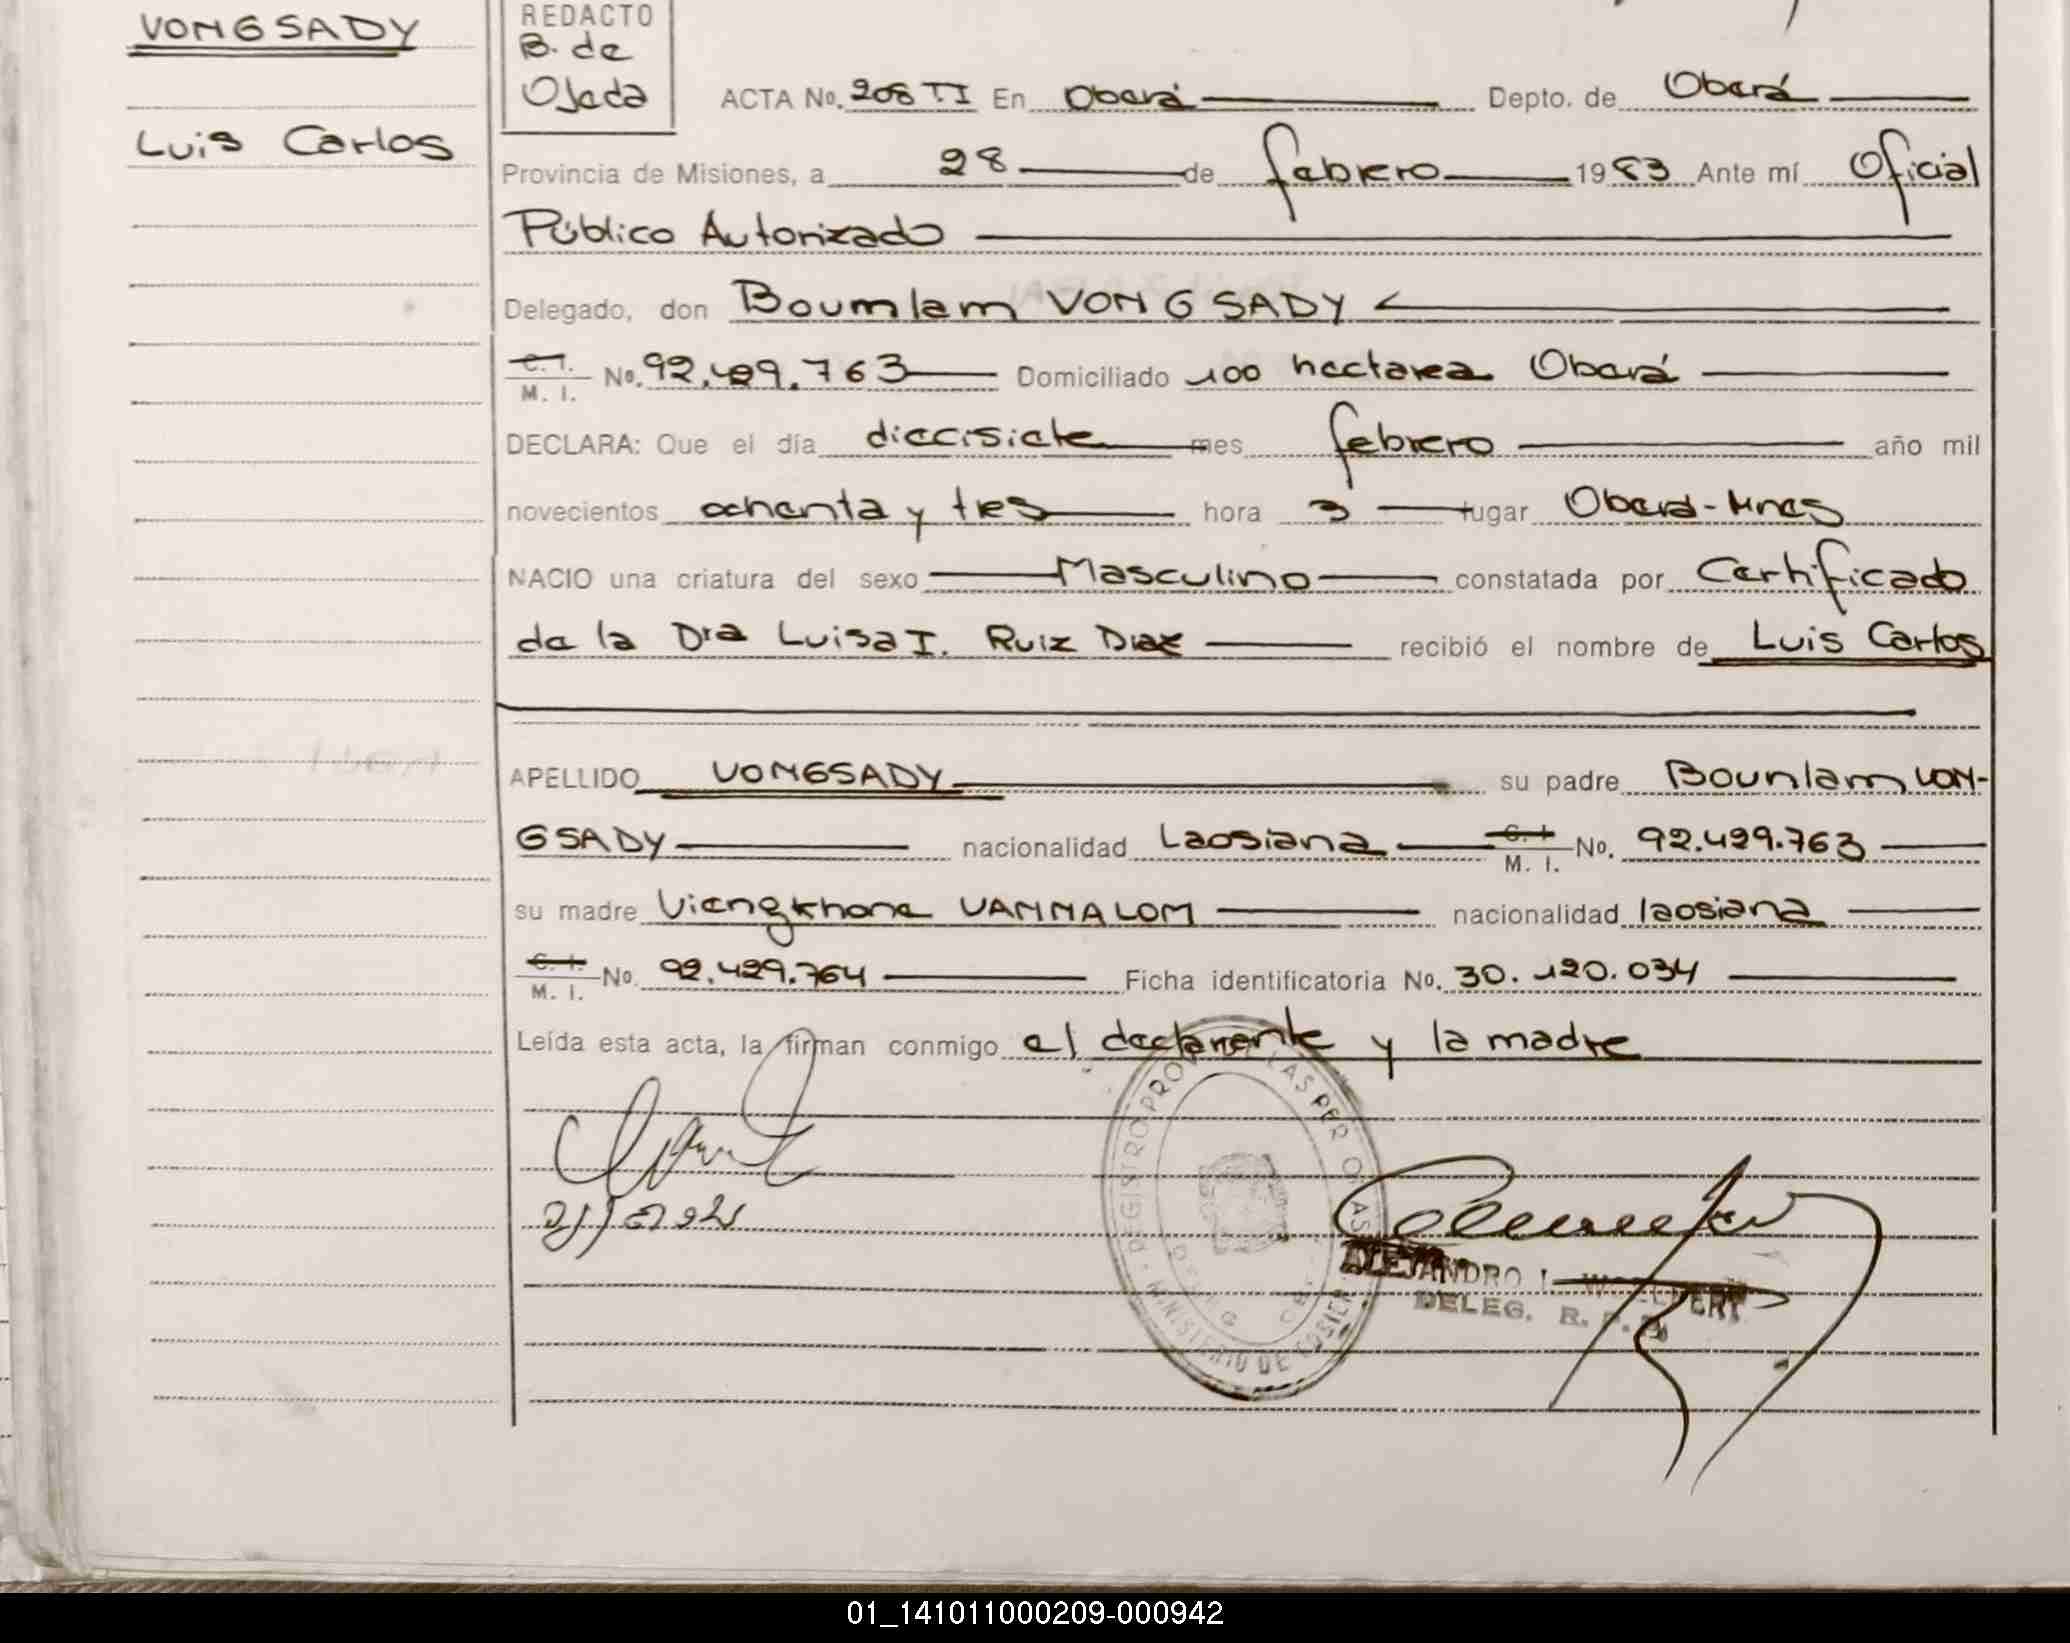 VONGSADY
Luis Carlos
REDACTO
B. de
Ojeda
ACTA No. 208 TI En Oberá Depto. de Oberá
Provincia de Misiones, a 28 de febrero 1983 Ante mí Oficial
Público Autorizado
Delegado, don Boumlam VONGSADY
C. I.
M. I. No. 92.429.763 Domiciliado 100 hectarea Oberá
DECLARA: Que el día diecisiete mes febrero año mil
novecientos ochenta y tres hora 3 lugar Oberá-Mnes
NACIO una criatura del sexo Masculino constatada por Certificado
de la Dra Luisa I. Ruiz Diaz recibió el nombre de Luis Carlos
APELLIDO VONGSADY su padre Bounlam VON-
GSADY nacionalidad Laosiana C. I. M. I. No. 92.429.763
su madre Viengkhone VANNALOM nacionalidad laosiana
C. I. M. I. No. 92.429.764 Ficha identificatoria No. 30.120.034
Leída esta acta, la firman conmigo el declarante y la madre
REGISTRO PROV LAS PERSONAS
MINISTERIO DE
ALEJANDRO I.
DELEG. R. P.
01_141011000209-000942